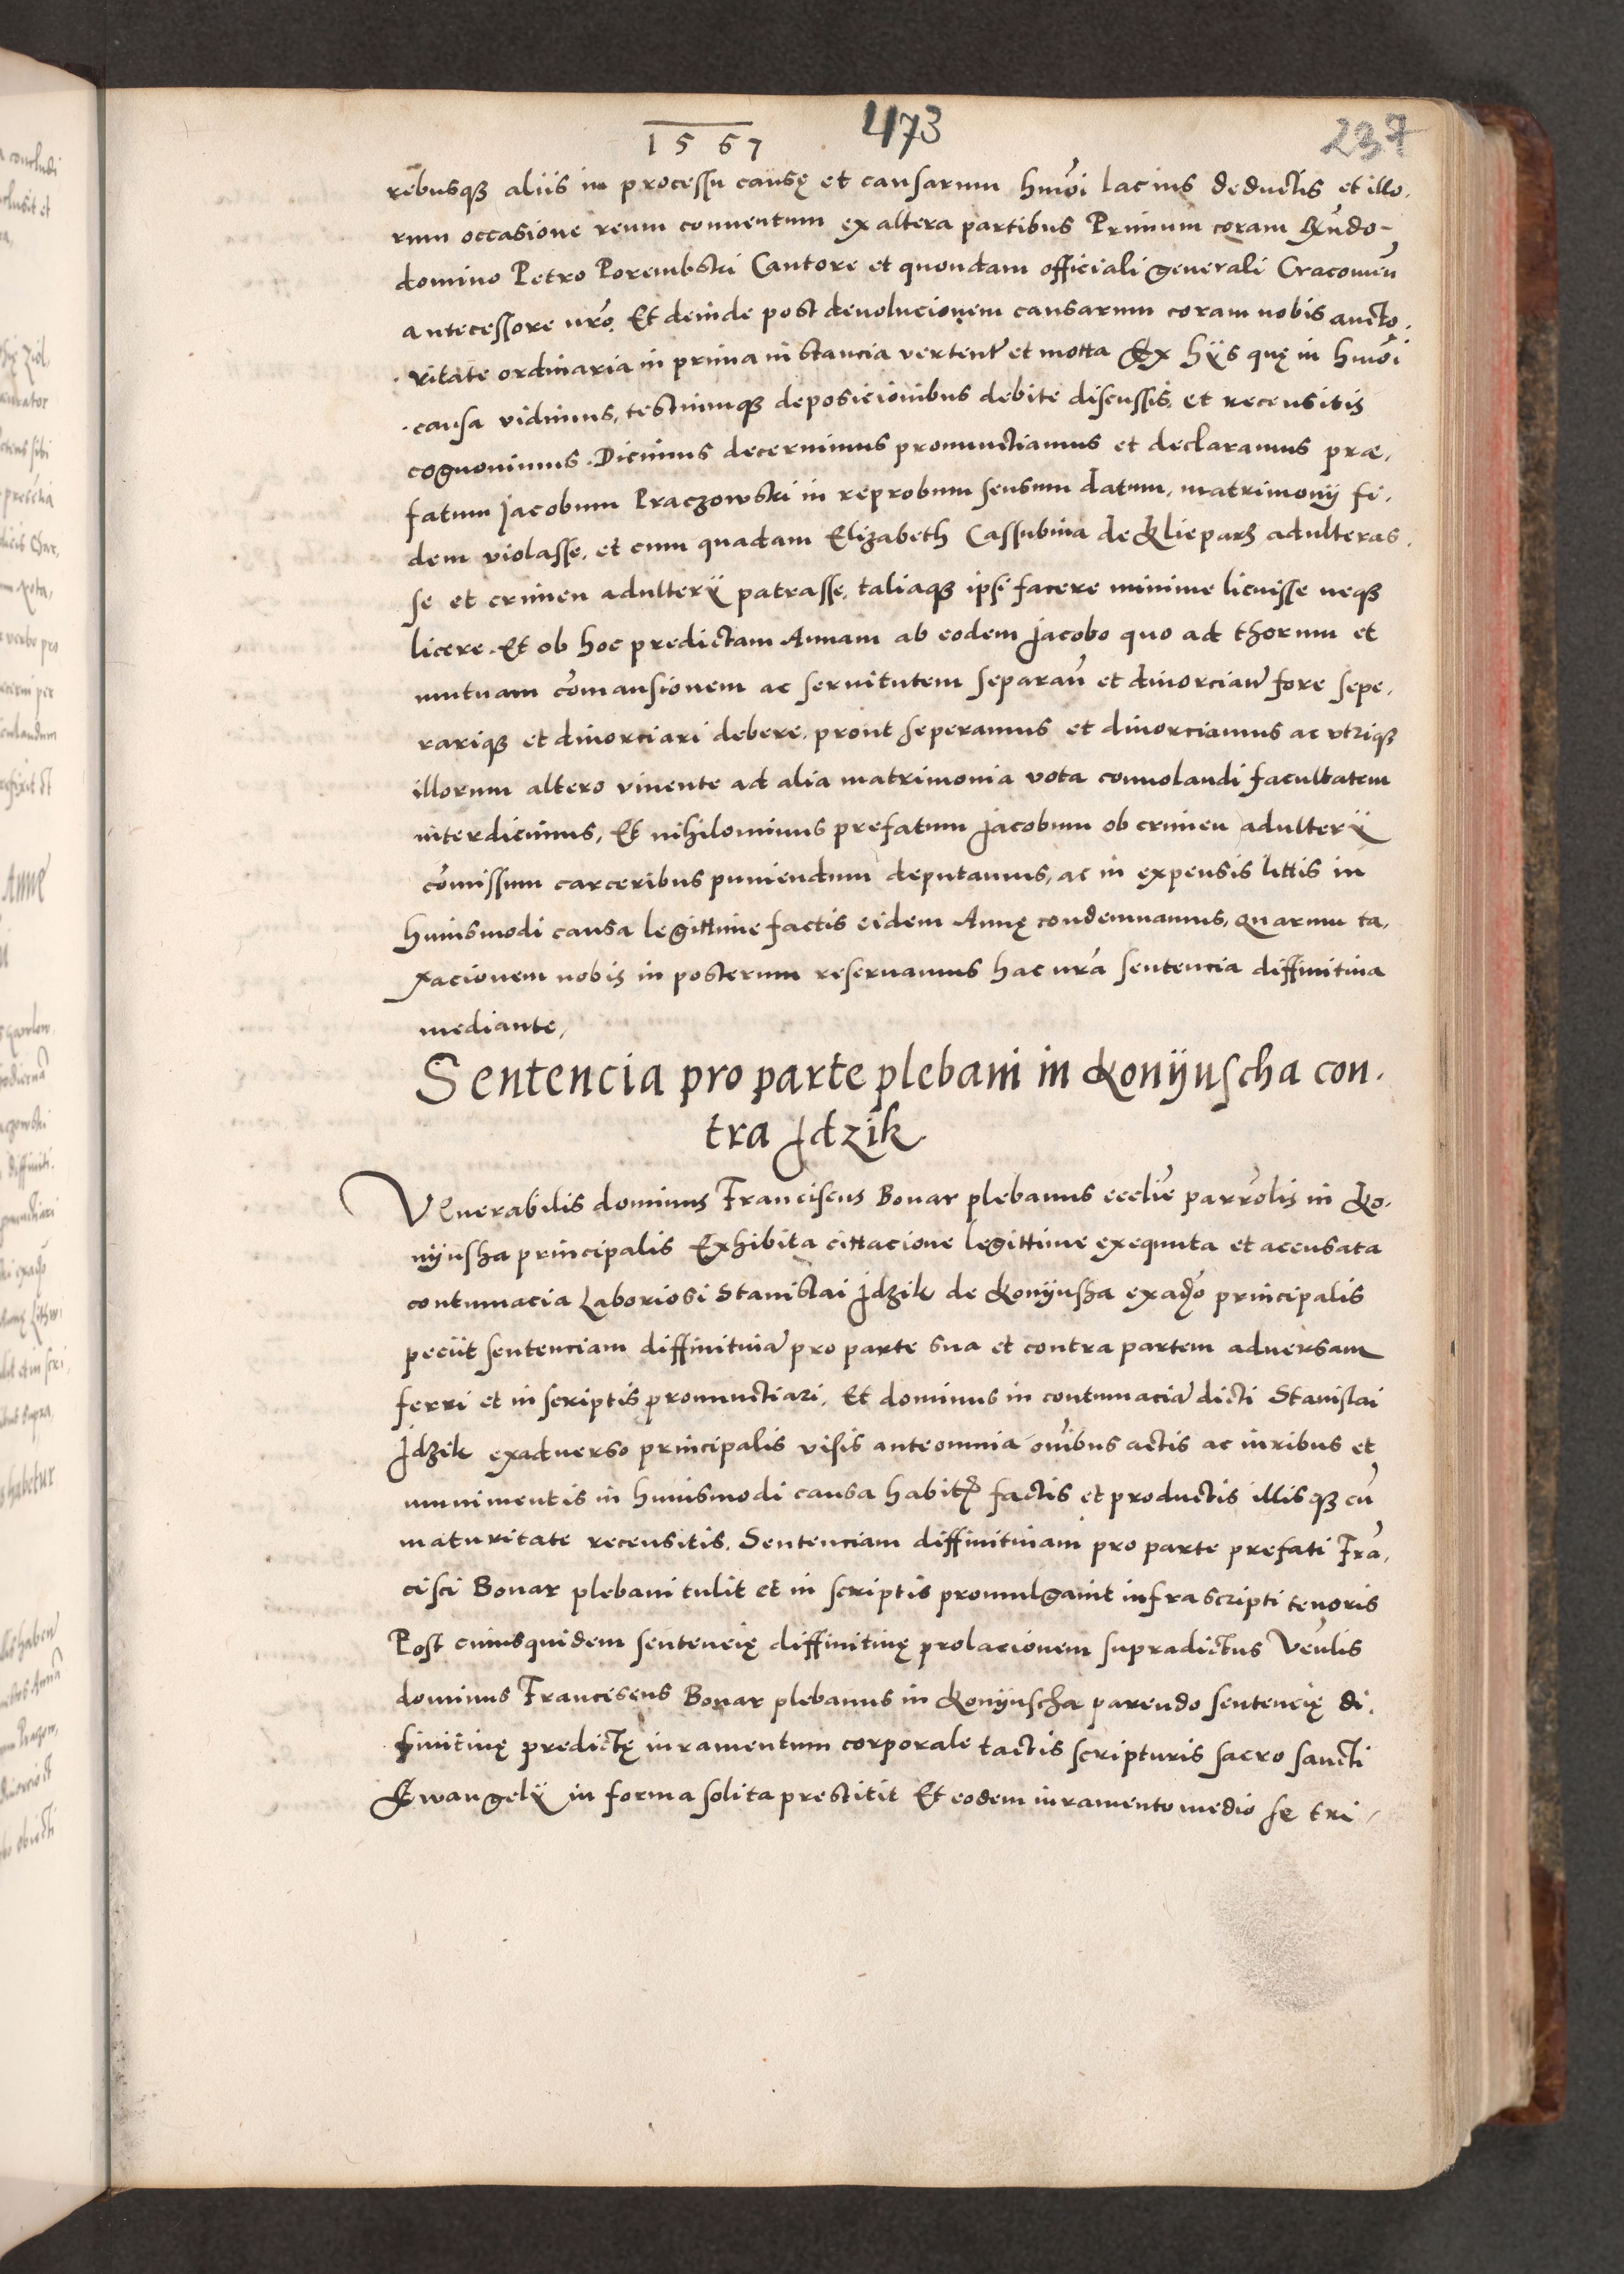 1567 473 237
rebusq[ue] aliis in processu causę et causarum hmōi lacius deductis et illo,
rum occasione reum conuentum ex altera partibus Primum coram Rn̄do-
domino Petro Porembski Cantore et quondam officiali generali Cracouieñ
antecessore nr̄o. Et deinde post deuolucionem causarum coram nobis aucto,
ritate ordinaria in prima instancia verteñt et motta Ex hÿs quę in hmōi
causa vidimus, testiumq[ue] deposicionibus debite discussis, et recensitis
cognouimus. Dicimus decernimus pronunctiamus et declaramus præ,
fatum Jacobum Praczowski in reprobum sensum datum, matrimonij fi,
dem violasse, et cum quadam Elizabeth Cassubina de Kliepars adulteras,
se et crimen adulterÿ patrasse, taliaq[ue] ipsi facere minime licuisse neq[ue]
licere. Et ob hoc predictam Annam ab eodem Jacobo quo ad thorum et
mutuam cōmansionem ac seruitutem separañ et diuorciañ fore sepe,
rariq[ue] et diuorciari debere, prout seperamus et diuorciamus ac vtriq[ue]
illorum altero viuente ad alia matrimonia vota conuolandi facultatem
interdicimus, Et nihilominus prefatum Jacobum ob crimen adulterÿ
cōmissum carceribus puniendum deputamus, ac in expensis littis in
huiusmodi causa legittime factis eidem Annę condemnamus, quarum ta,
xacionem nobis in posterum reseruamus hac nr̄a sentencia diffinitiua
mediante,
Sentencia pro parte plebani in Konÿuscha con.
tra Jdzik
Venerabilis dominus Franciscus Bonar plebanus eccl̄ie parr̄olis in Ko,
nÿusha principalis Exhibita cittacione legittime exequuta et accusata
contumacia Laboriosi Stanislai Jdzik de Konÿusha exad[vers]o principalis
peciit sentenciam diffinitiuā pro parte sua et contra partem aduersam
ferri et in scriptis pronunctiari, Et dominus in contumaciā dicti Stanislai
Jdzik exaduerso principalis visis ante omnia om̄ibus actis ac iuribus et
munimentis in huiusmodi causa habit[is] factis et productis illisq[ue] cū
maturitate recensitis. Sentenciam diffinitiuam pro parte prefati Frā,
cisci Bonar plebani tulit et in scriptis promulgauit infrascripti tenoris
Post cuiusquidem sentencię diffinitiuę prolacionem supradictus Ven̄lis
dominus Franciscus Bonar plebanus in Konÿuscha parendo sentencię di,
finitiuę predictę iuramentum corporale tactis scripturis sacro sancti
Ewangelÿ in forma solita prestitit Et eodem iuramento medio se tri,